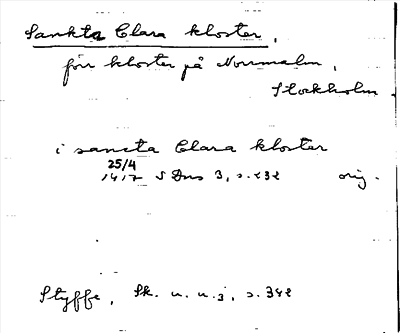 Sankta Clara kloster,
förr kloster på Norrmalm,
Stockholm
i sancta Clara kloster
25/4
1417 SDns 3, s. 232 orig.
Styffe, Sk. u. u. 3, s. 342